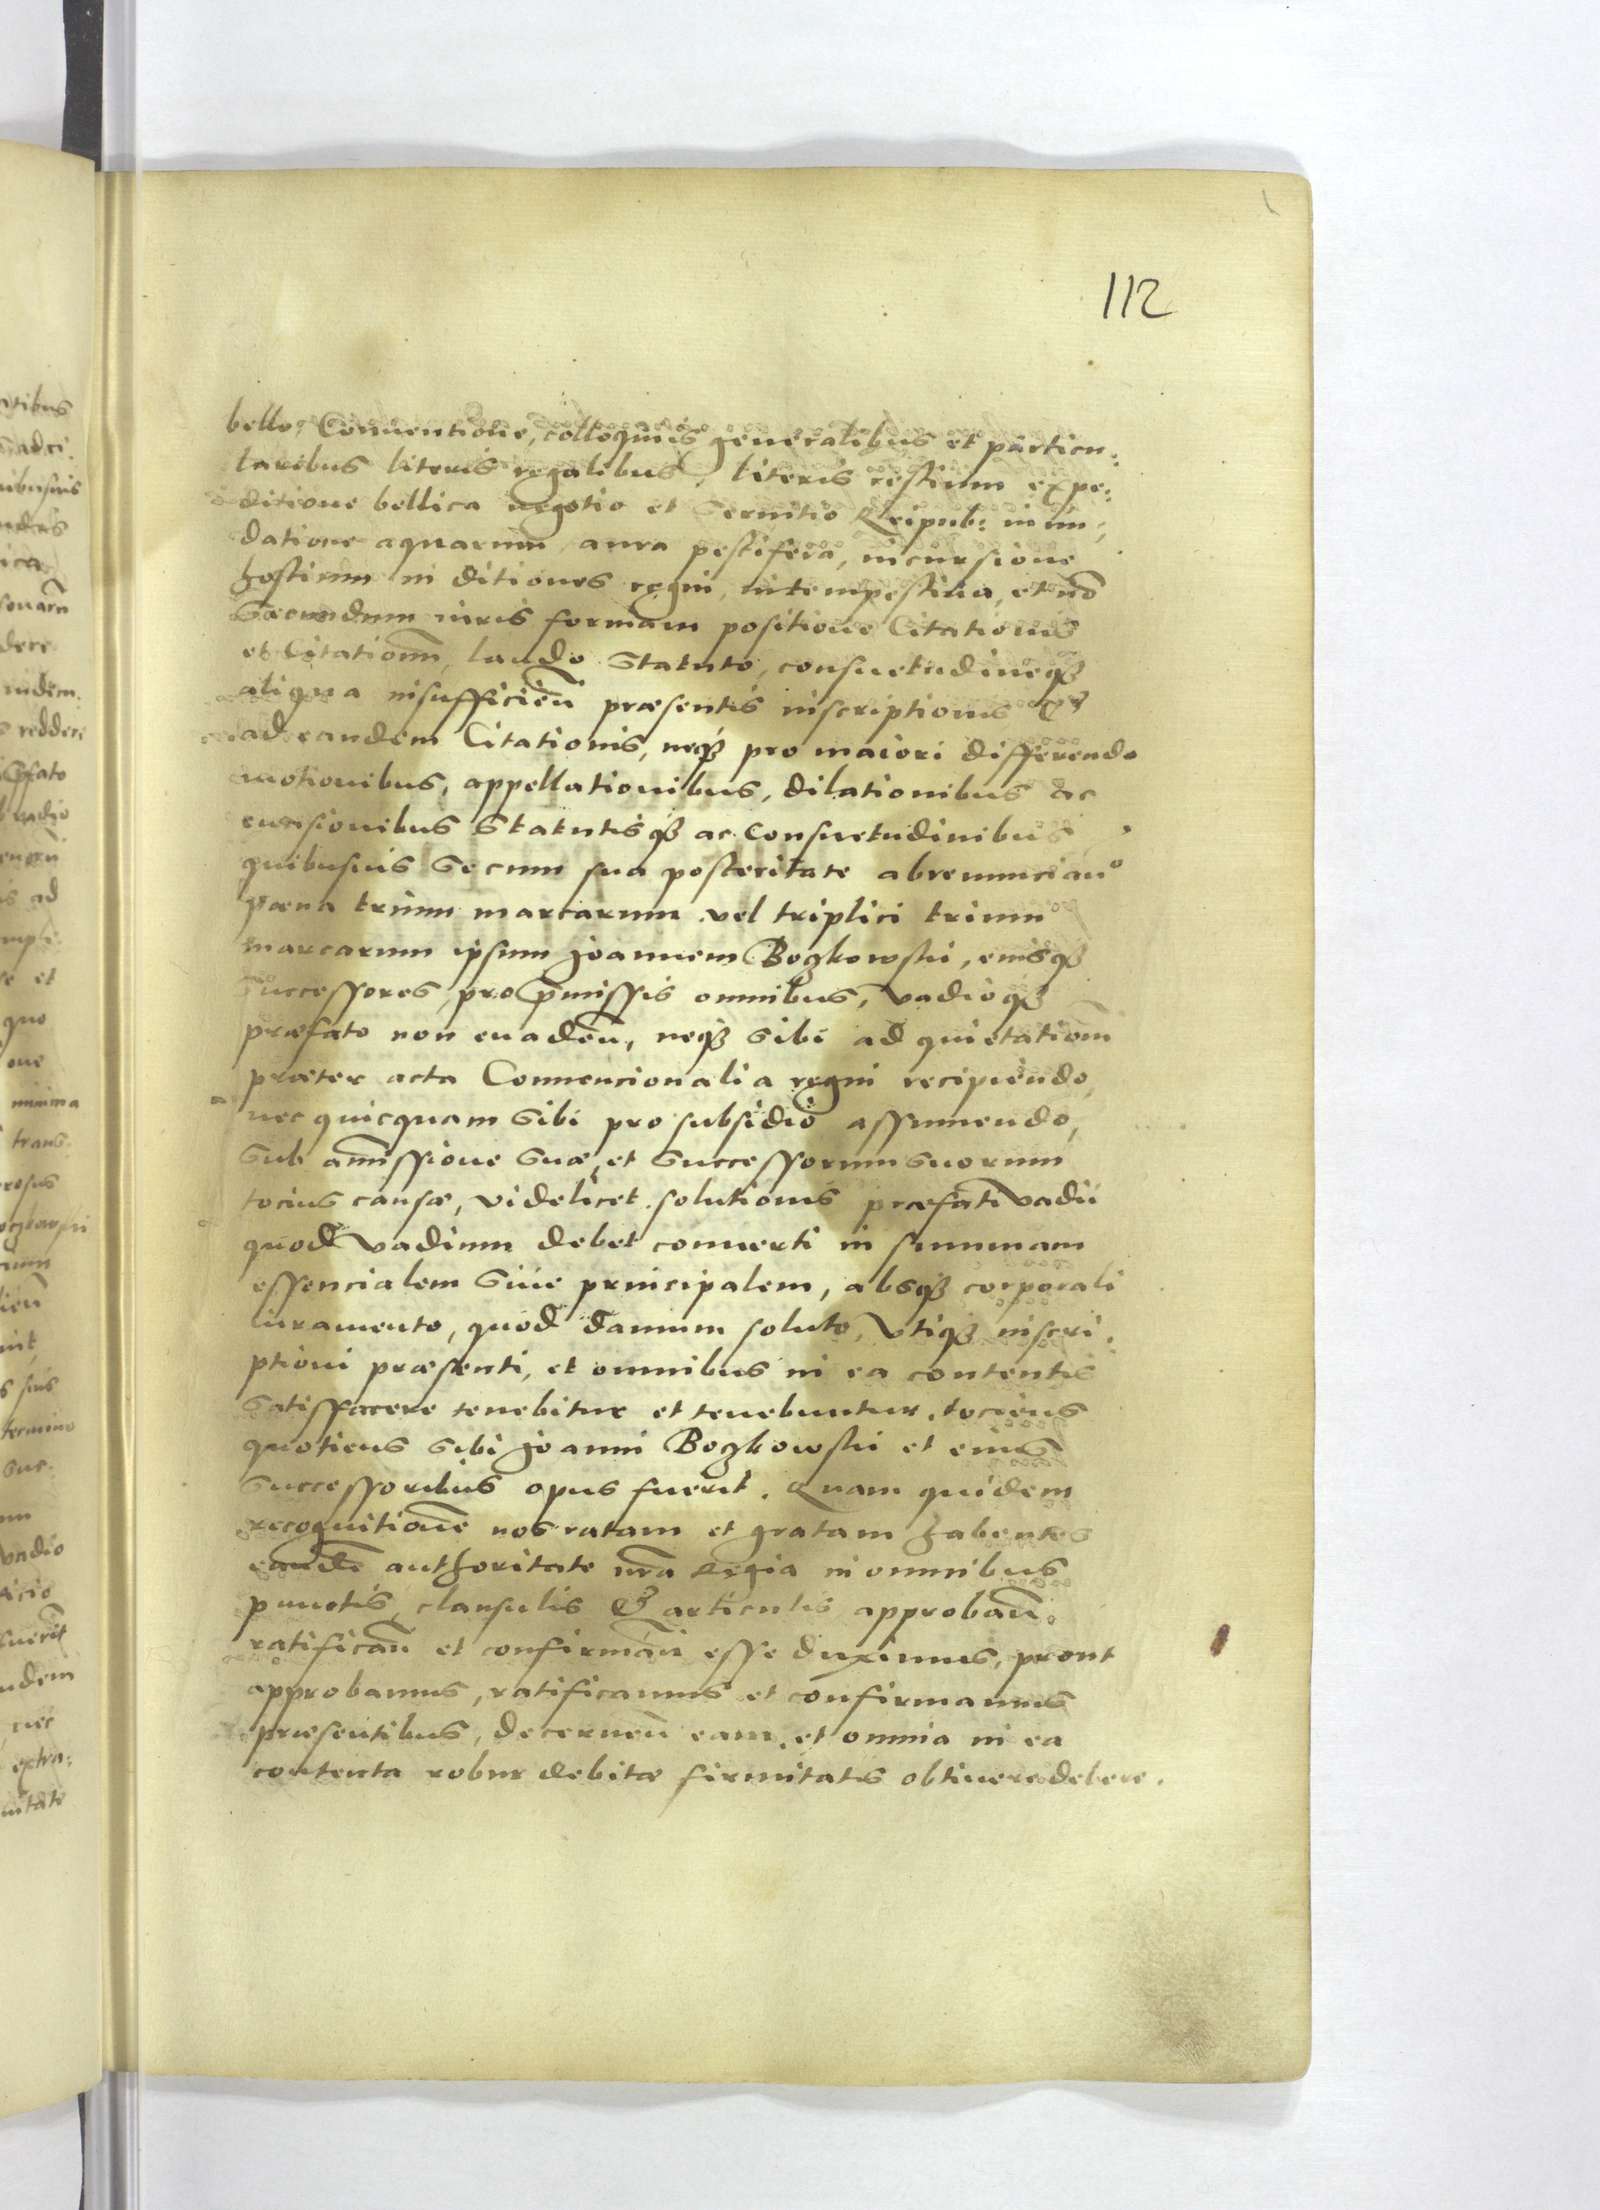 112
bello, Conuentione, colloquiis generalibus et particu:
laribus literis regalibus, literis restium expe:
ditione bellica negotio et Seruitio Reipub: inun,
datione aquarum aura pestifera, incursione
hostium in ditiones regni, intempestiua, et nõ
Secundum iuris formam positione Citationis
et Citationũ, laudo Statuto, consuetudineqꝫ
aliqua insufficieñ præsentis inscriptionis &
ad eandem Citationis, neqꝫ pro maiori differendo
motionibus, appellationibus, dilationibus ac
euasionibus Statutisqꝫ ac Consuetudinibus
quibusuis Se cum sua posteritate abrenunciañ
pœna trium marcarum vel triplici trium
marcarum ipsum Joannem Bogkowski, eiusqꝫ
Successores, pro p̃missis omnibus, vadioqꝫ
præfato non euadeñ, neqꝫ Sibi ad quietationẽ
præter acta Conuencionalia regni recipiendo,
nec quicquam Sibi pro subsidio assumendo,
Sub amissione Suæ, et Successorum Suorum
tocius causæ, videlicet solutionis præfati vadii
quod vadium debet conuerti in summam
essencialem Siue principalem, absqꝫ corporali
iuramento, quod damnum soluto, Vtiqꝫ inscri,
ptioni præsenti, et omnibus in ea contentis
Satisfacere tenebitur et tenebuntur, tociens
quotiens Sibi Joanni Bogkowski et eius
Successoribus opus fuerit. Quam quidem
recognitionẽ nos ratam et gratam habentes
eandẽ authoritate nr̃a Regia in omnibus
punctis, clausulis & articulis approbañ.
ratificañ et confirmañ esse duximus, prout
approbamus, ratificamus et confirmamus
præsentibus, decerneñ eam, et omnia in ea
contenta robur debitæ firmitatis obtinere debere.